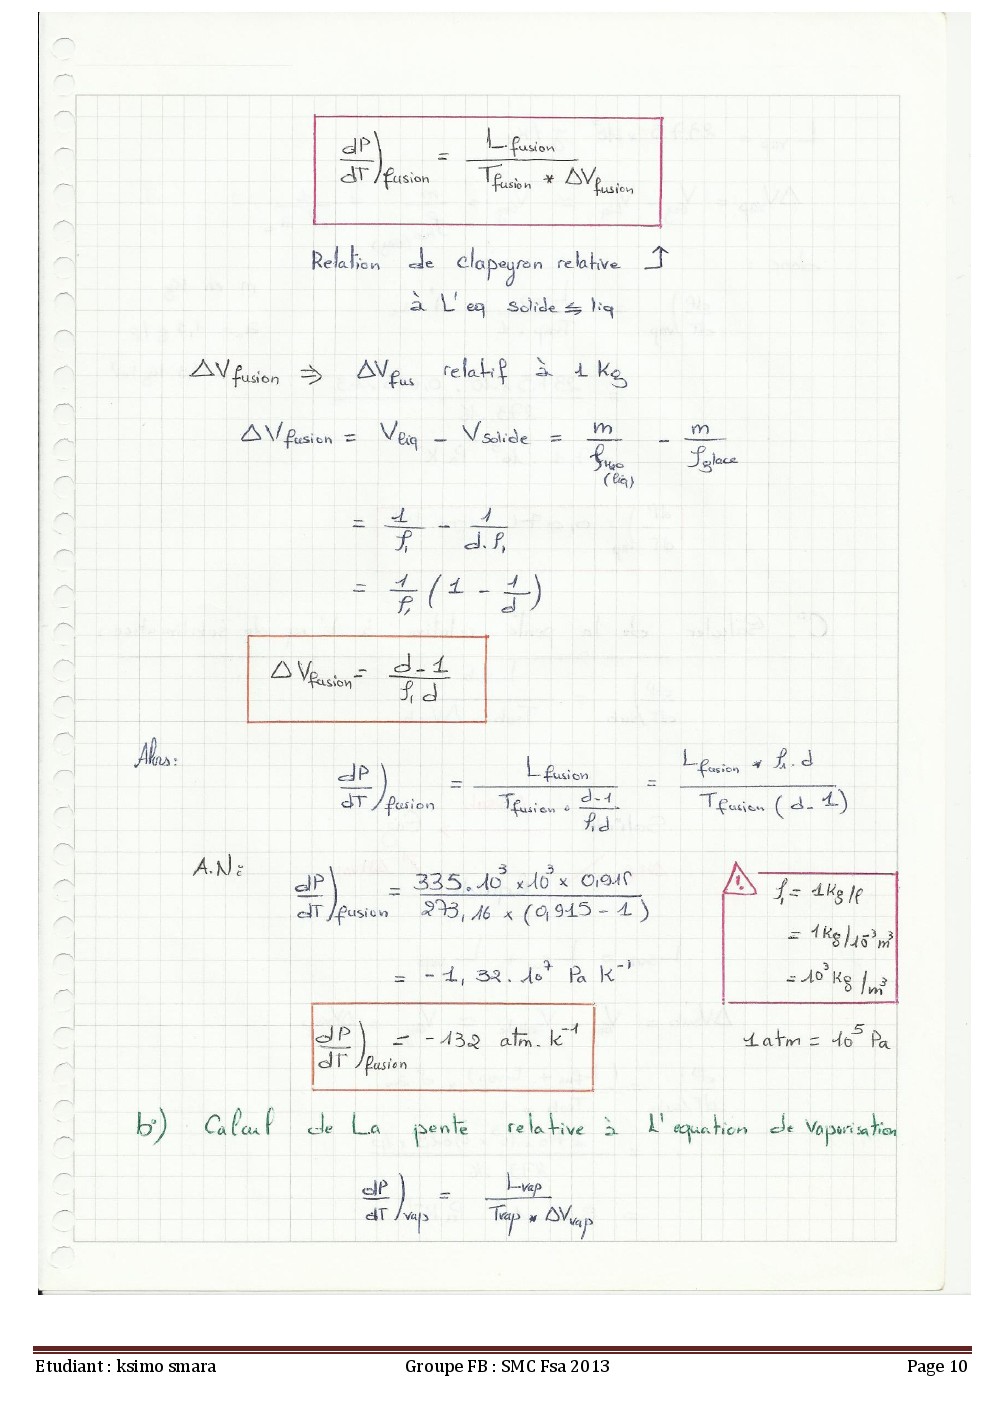 dP/dT)fusion = Lfusion / Tfusion * ΔVfusion
Relation de clapeyron relative ↑
à L'eq solide ⇆ liq
ΔVfusion ⇒ ΔVfus relatif à 1 Kg
ΔVfusion = Vliq - Vsolide = m/ρH₂O (liq) - m/ρglace
= 1/ρ₁ - 1/d.ρ₁
= 1/ρ₁ (1 - 1/d)
ΔVfusion = d-1 / ρ₁d
Alors:
dP/dT)fusion = Lfusion / Tfusion . d-1/ρ₁d = Lfusion * ρ₁.d / Tfusion (d-1)
A.N:
dP/dT)fusion = 335.10³ x10³ x 0,915 / 273,16 x (0,915 - 1)
ρ₁ = 1Kg/ℓ
= 1Kg/10⁻³m³
= 10³Kg/m³
= -1,32.10⁷ Pa K⁻¹
dP/dT)fusion = -132 atm. K⁻¹
1atm = 10⁵ Pa
b°) Calcul de La pente relative à L'equation de vaporisation
dP/dT)vap = Lvap / Tvap * ΔVvap
Etudiant : ksimo smara Groupe FB : SMC Fsa 2013 Page 10